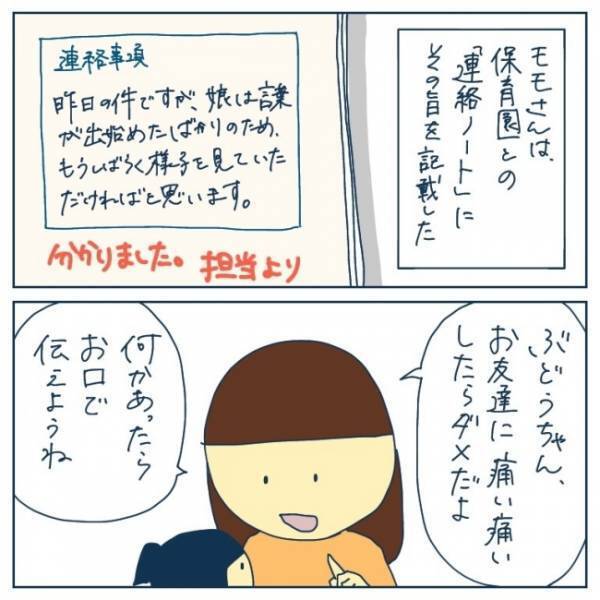 モモさんは、
保育園との
「連絡ノート」に
その旨を記載した
連絡事項
昨日の件ですが、娘は言葉
が出始めたばかりのため、
もうしばらく様子を見ていた
だければと思います。
分かりました。 担当より
ぶどうちゃん、
お友達に痛い痛い
したらダメだよ
何かあったら
お口で
伝えようね